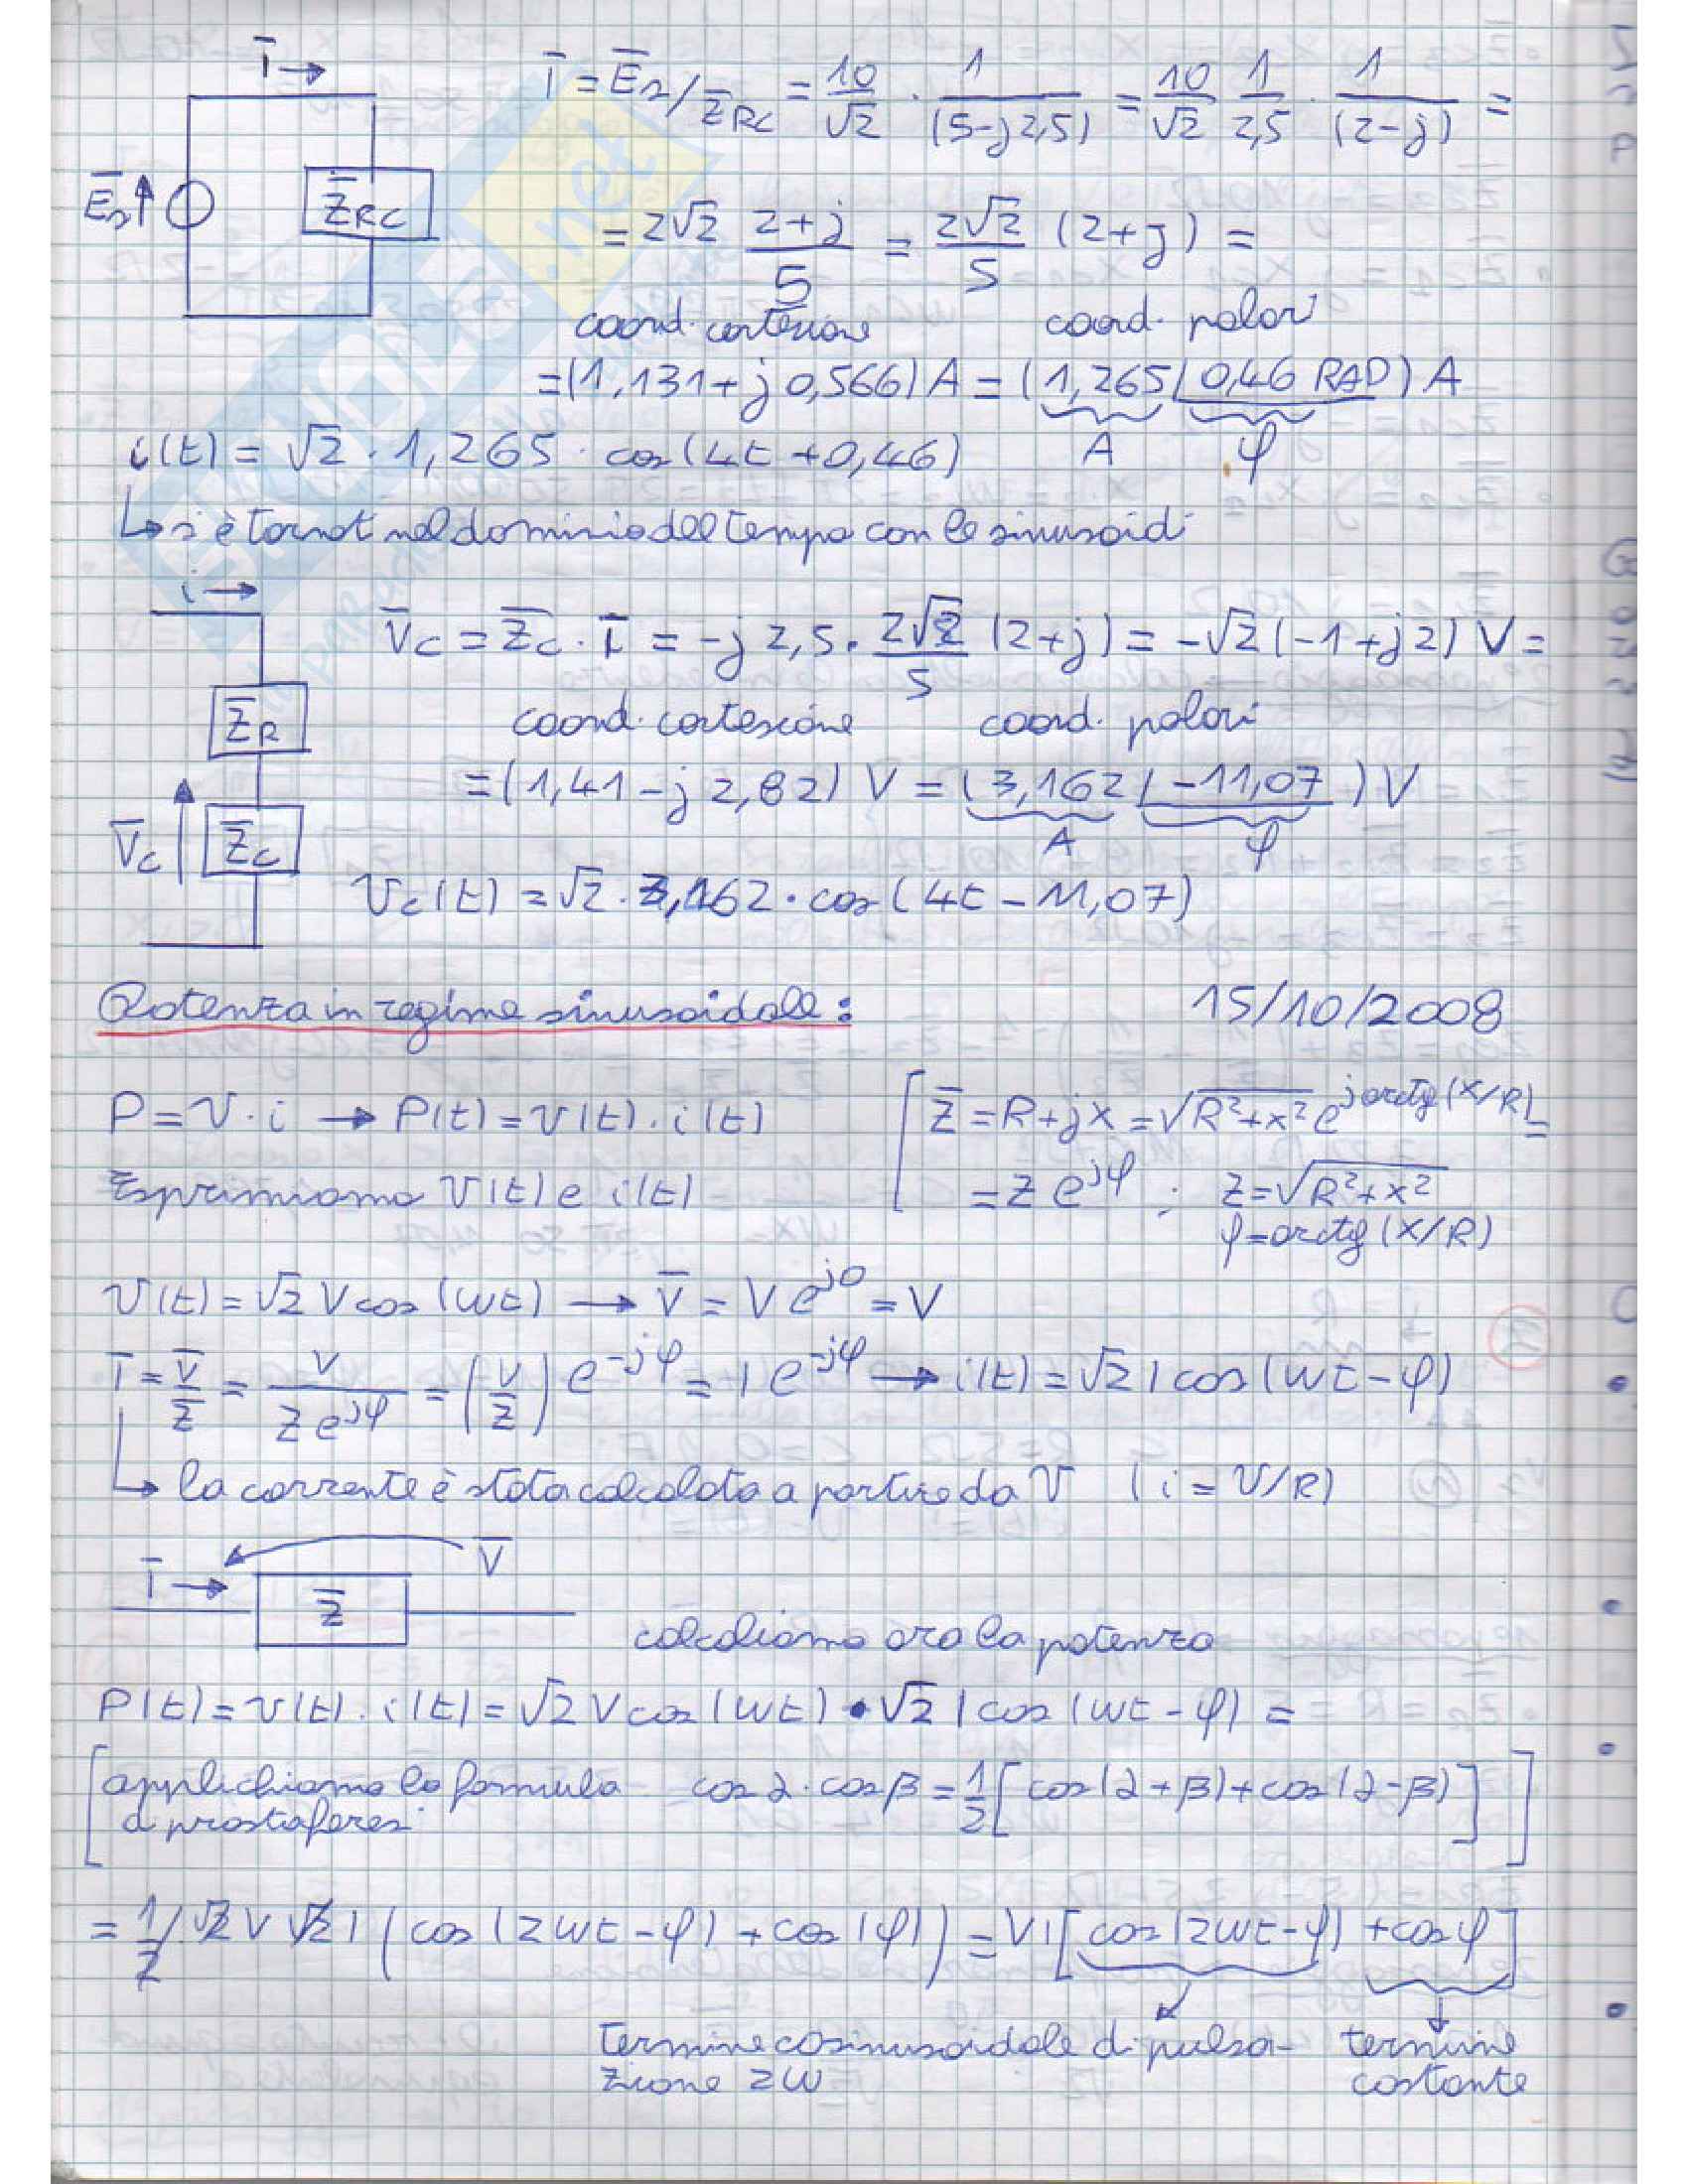 Ī →
Ī = Ēs / Z̄RC = 10/√2 · 1/(5-j2,5) = 10/√2 1/2,5 · 1/(2-j) =
Ēs ↑ Z̄RC
= 2√2 (2+j)/5 = 2√2/5 (2+j) =
coord. cartesiane coord. polari
= (1,131 + j 0,566) A = (1,265 ∠0,46 RAD) A
A φ
i(t) = √2 · 1,265 · cos(4t + 0,46)
↳ si è tornat nel dominio del tempo con le sinusoidi
i →
V̄c = Z̄c · Ī = -j 2,5 · 2√2/5 (2+j) = -√2 (-1+j2) V =
Z̄R
coord. cartesiane coord. polari
= (1,41 - j 2,82) V = (3,162 ∠-11,07) V
A φ
V̄c ↑ Z̄c
vc(t) = √2 · 3,162 · cos(4t - 11,07)
Potenza in regime sinusoidale: 15/10/2008
P = v · i → P(t) = v(t) · i(t) [ Z̄ = R + jX = √(R²+X²) e^(j arctg(X/R)) =
Esprimiamo v(t) e i(t) = Z e^(jφ) ; Z = √(R²+X²)
φ = arctg(X/R)
v(t) = √2 V cos(ωt) → V̄ = V e^(j0) = V
Ī = V̄/Z̄ = V/(Z e^(jφ)) = (V/Z) e^(-jφ) = I e^(-jφ) → i(t) = √2 I cos(ωt - φ)
↳ la corrente è stata calcolata a partire da V (i = V/R)
Ī → Z̄ V̄
calcoliamo ora la potenza
P(t) = v(t) · i(t) = √2 V cos(ωt) · √2 I cos(ωt - φ) =
[ applichiamo la formula cos α · cos β = 1/2 [cos(α+β) + cos(α-β)] ]
di prostaferesi
= 1/2 √2 V √2 I (cos(2ωt - φ) + cos(φ)) = VI [cos(2ωt - φ) + cos φ]
termine cosinusoidale di pulsa- termine
zione 2ω costante
SKUOLA.net